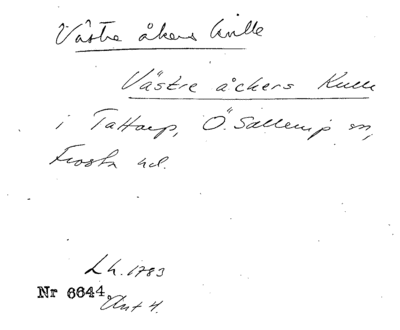 Västre åkers kulle
Västre åckers Kulle
i Tattarp, Ö. Sallerup sn,
Frosta hd.
Lh. 1783
Nr 6644
Akt 4.